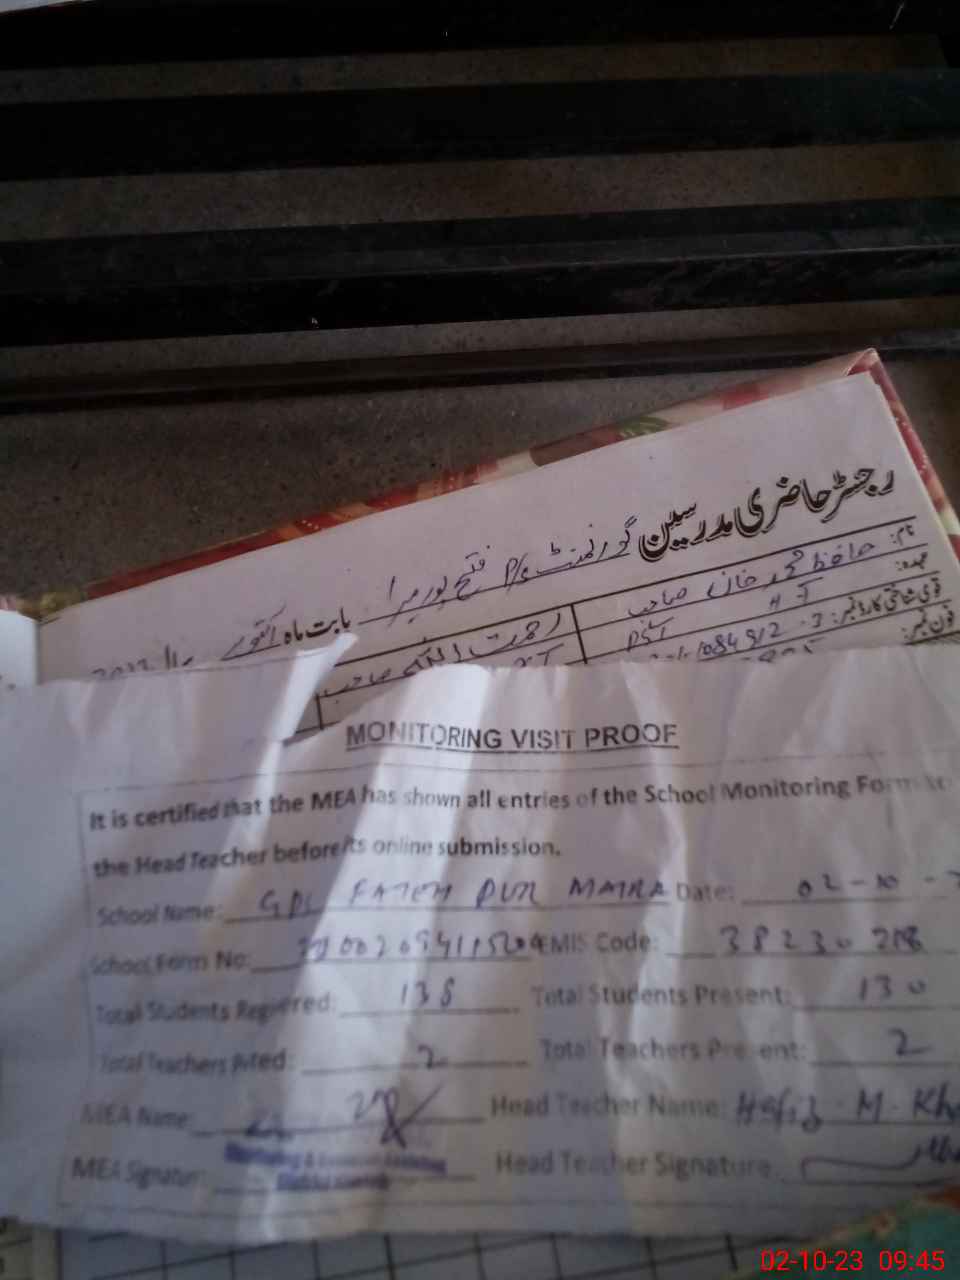 رجسٹر حاضری مدرسین گورنمنٹ P/S فتح پور میرا بابت ماہ اکتوبر
نام: حافظ محمد خان صاحب
رحمت اللہ صاحب
عہدہ: PST HT
قومی شناختی کارڈ نمبر:
فون نمبر:
MONITORING VISIT PROOF
It is certified that the MEA has shown all entries of the School Monitoring Form to
the Head Teacher before its online submission.
School Name: GPS FATEH PUR MAIRA Date: 02-10-
School Form No: EMIS Code: 38230
Total Students Registered: 135 Total Students Present: 130
Total Teachers Posted: 2 Total Teachers Present: 2
MEA Name: Head Teacher Name: Hafiz M. Kha
MEA Signature: Head Teacher Signature:
02-10-23 09:45